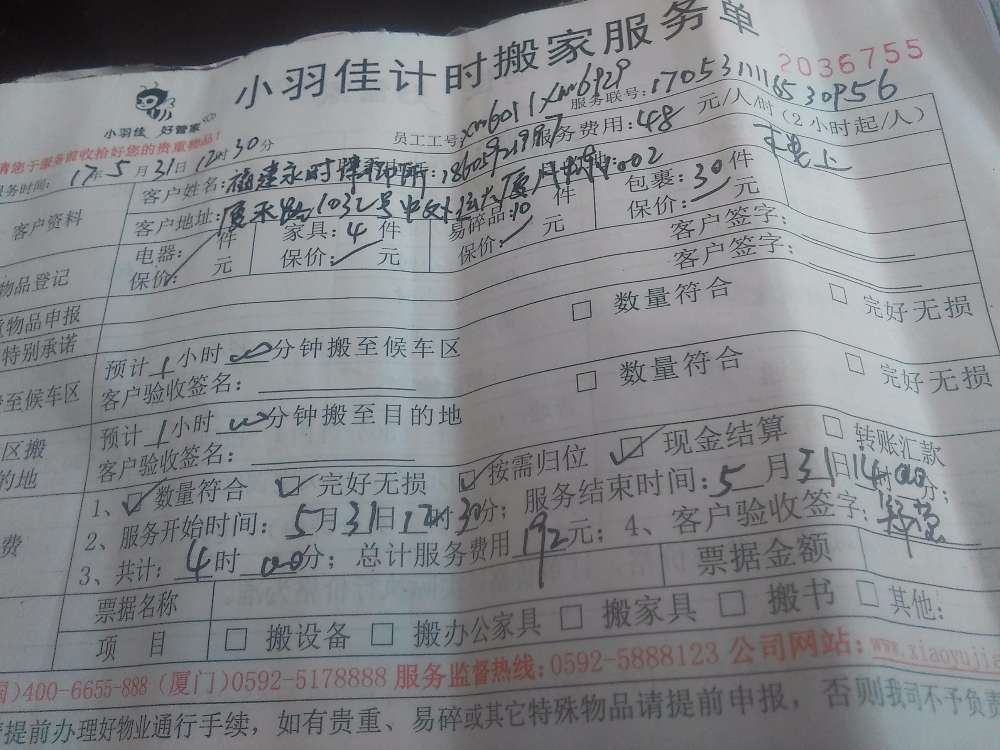 小羽佳计时搬家服务单
2036755
小羽佳 好管家
员工工号:xm6011 xm6929 服务联号:1705311116530956
请您于服务前收拾好您的贵重物品!
服务时间: 17年5月31日12时30分 服务费用:48元/人/时(2小时起/人)
客户资料 客户姓名:
客户地址: 1032号
物品登记 电器: 件 家具:4件 易碎品:10件 包裹:30件
保价: 元 保价: 元 保价: 元 保价: 元
物品申报 客户签字:
特别承诺 客户签字:
至候车区 预计1小时00分钟搬至候车区 □ 数量符合 □ 完好无损
客户验收签名:
区搬 预计1小时00分钟搬至目的地 □ 数量符合 □ 完好无损
的地 客户验收签名:
1、☑ 数量符合 ☑ 完好无损 ☑ 按需归位 ☑ 现金结算 □ 转账汇款
费 2、服务开始时间:5月31日12时30分;服务结束时间:5月31日14时00分;
3、共计:4时00分;总计服务费用192元;4、客户验收签字:
票据名称 票据金额
项 目 □ 搬设备 □ 搬办公家具 □ 搬家具 □ 搬书 □ 其他:
国)400-6655-888 (厦门)0592-5178888 服务监督热线:0592-5888123 公司网站:www.xiaoyujia
请提前办理好物业通行手续,如有贵重、易碎或其它特殊物品请提前申报,否则我司不予负责